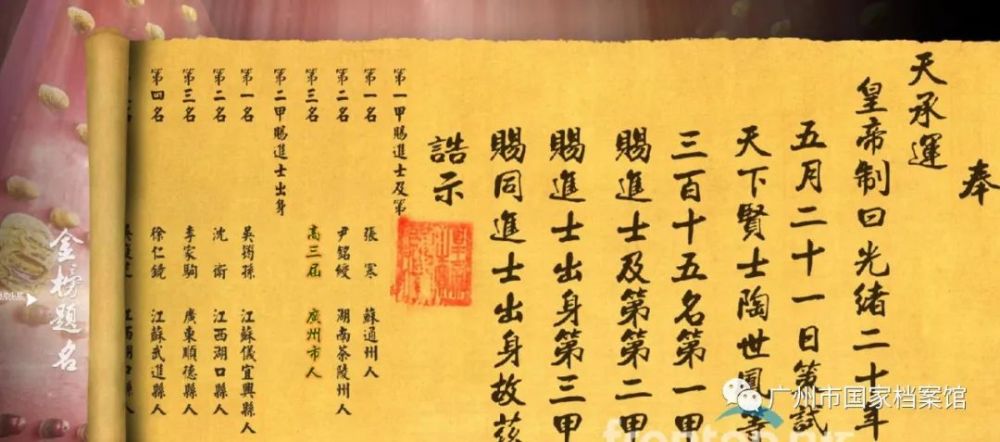 奉
天承運
皇帝制曰光緒二十年
五月二十一日策試
天下賢士陶世鳳等
三百十五名第一甲
賜進士及第第二甲
賜進士出身第三甲
賜同進士出身故茲
誥示
第一甲賜進士及第
第一名 張寒 蘇通州人
第二名 尹銘綬 湖南茶陵州人
第三名 高三屆 廣州市人
第二甲賜進士出身
第一名 吳筠孫 江蘇儀宜興縣人
第二名 沈衛 江西湖口縣人
第三名 李家駒 廣東順德縣人
第四名 徐仁鏡 江蘇武進縣人
金榜題名
广州市国家档案馆